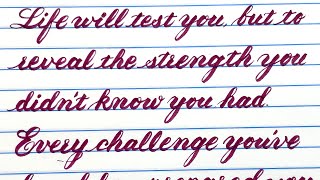 Life will test you, but to
reveal the strength you
didn't know you had.
Every challenge you've